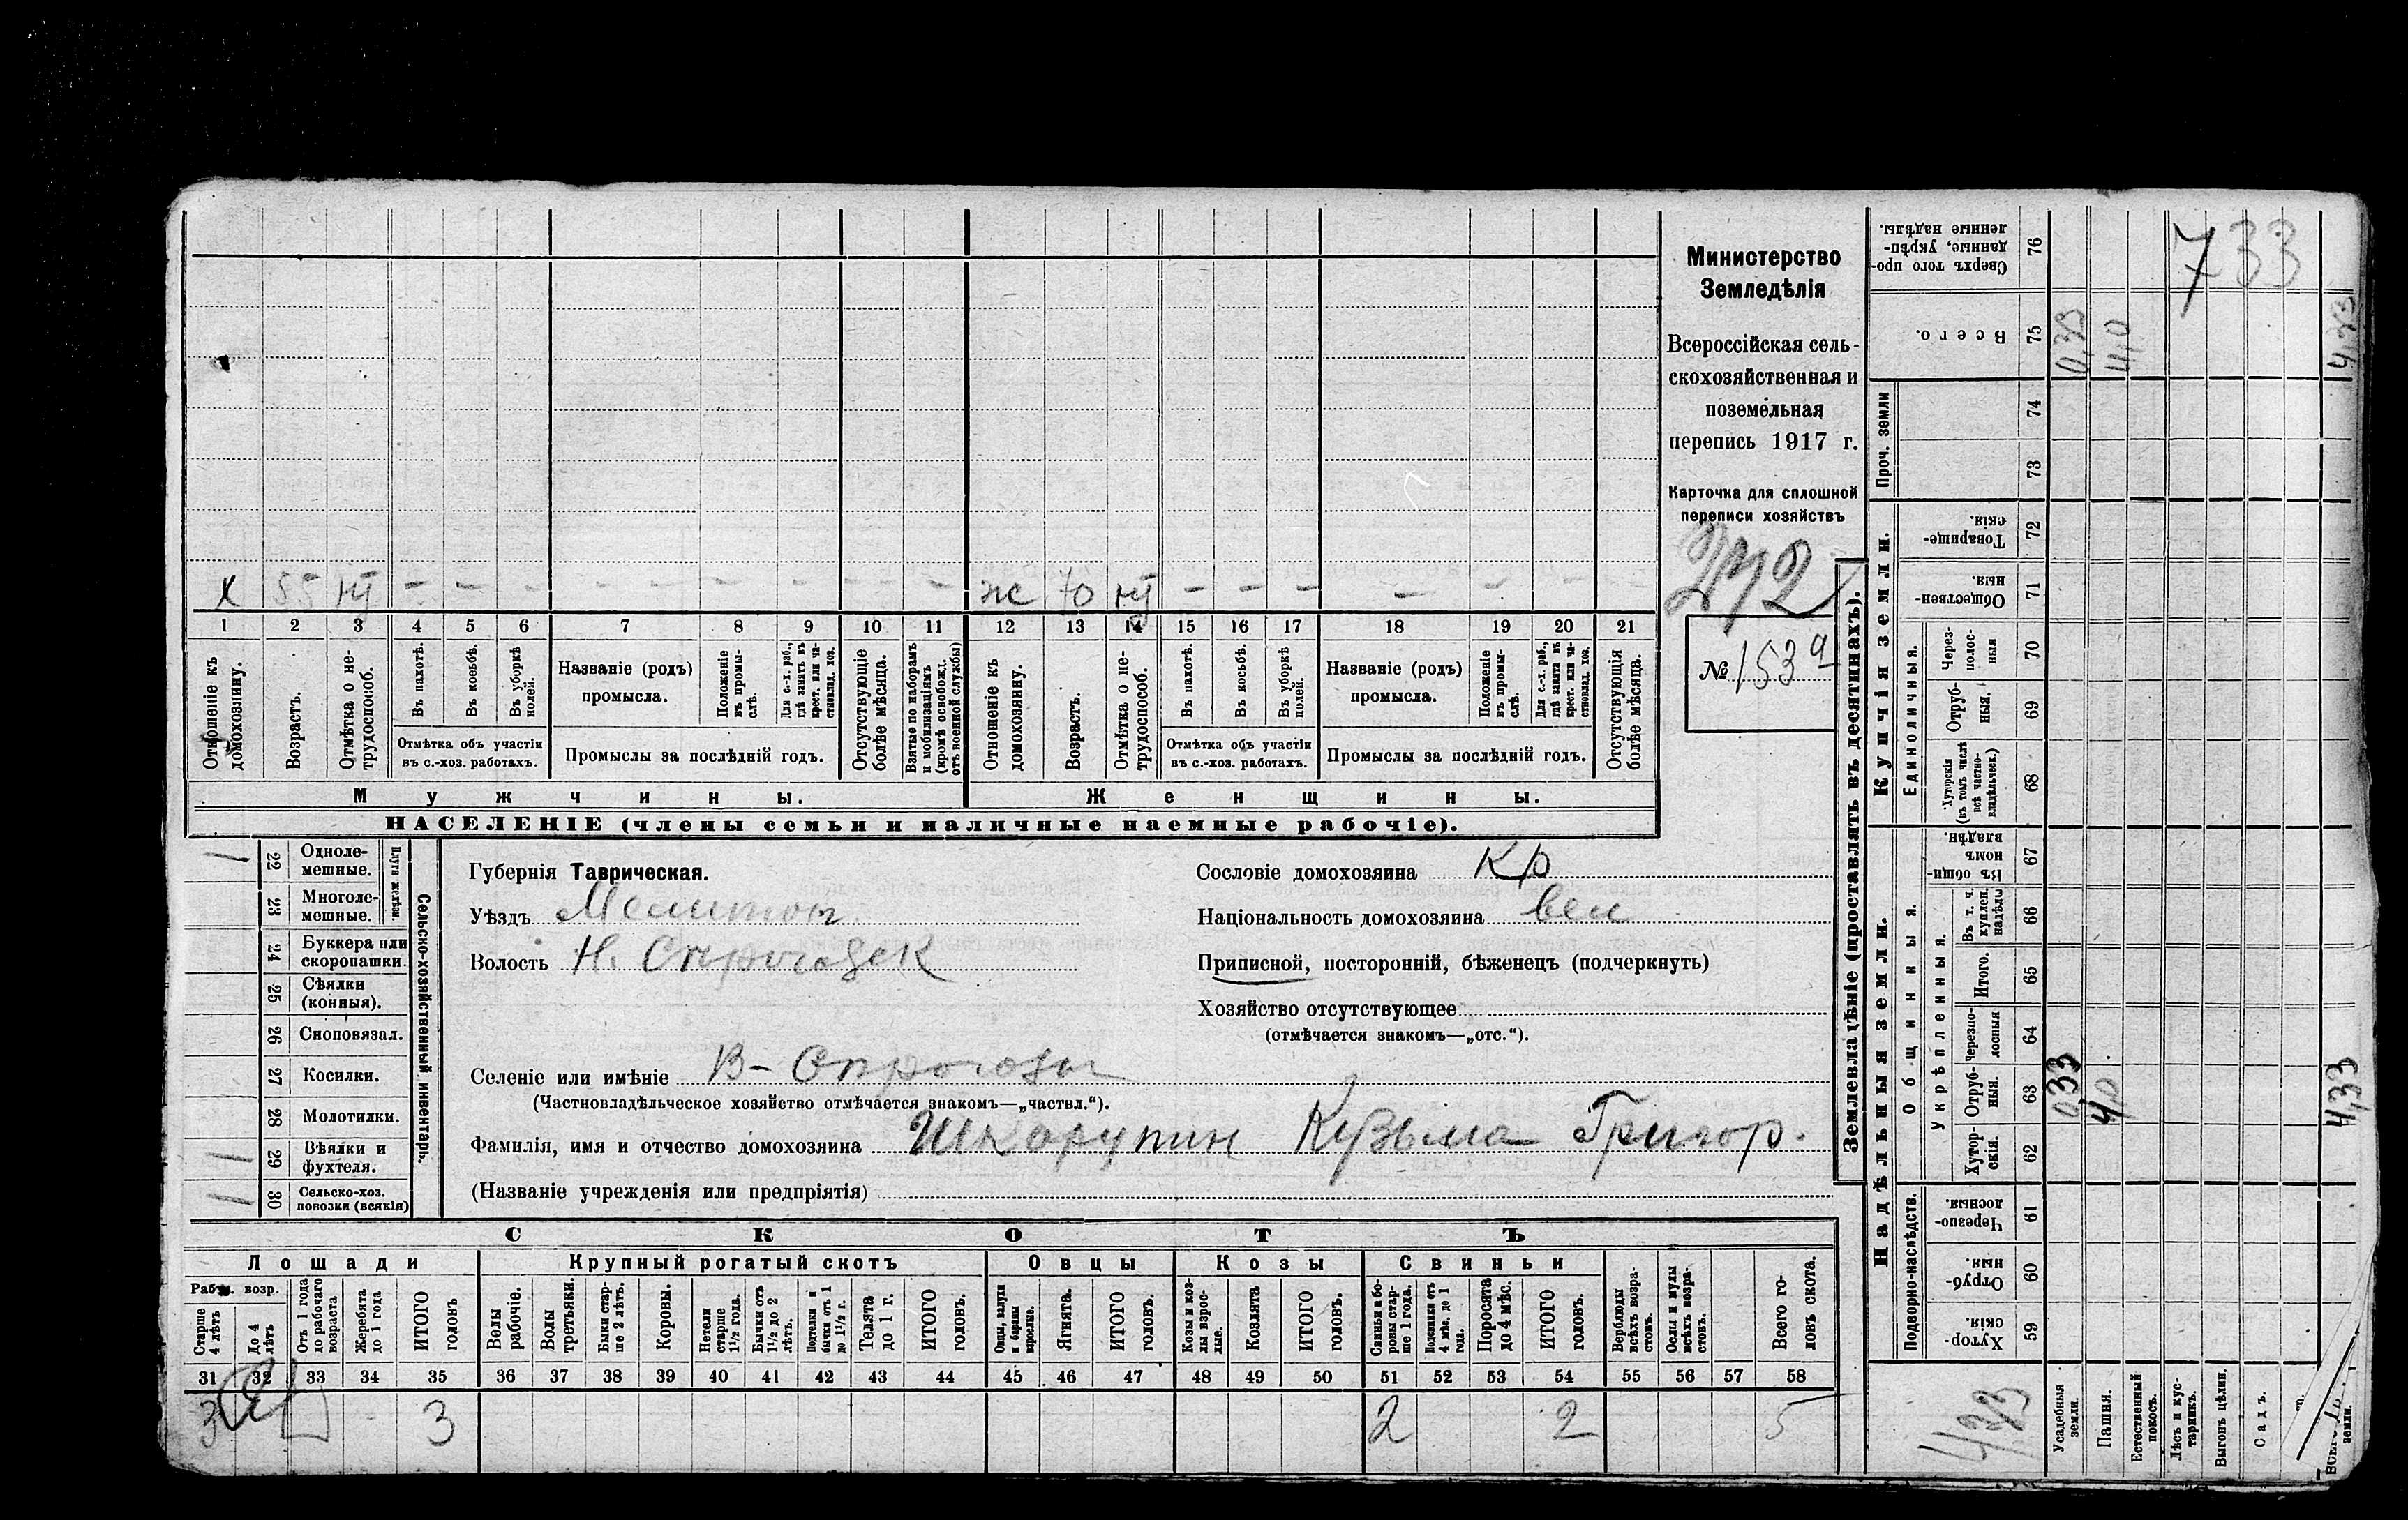 Министерство
Земледѣлія
Всероссійская сель-
скохозяйственная и
поземельная
перепись 1917 г.
Карточка для сплошной
переписи хозяйствъ
242
№ 153а
х 55 нт – – – – – – – – ж 70 нт – – – – –
1 2 3 4 5 6 7 8 9 10 11 12 13 14 15 16 17 18 19 20 21
Отношеніе къ домохозяину.
Возрастъ.
Отмѣтка о не-
трудоспособ.
Въ пахотѣ.
Въ косьбѣ.
Въ уборкѣ
полей.
Отмѣтка объ участіи
въ с.-хоз. работахъ.
Названіе (родъ)
промысла.
Положеніе
въ промы-
слѣ.
Для с.-х. раб.,
гдѣ занятъ въ
крест. или ча-
стновлад. хоз.
Промыслы за послѣдній годъ.
Отсутствующіе
болѣе мѣсяца.
Взятые по наборамъ
и мобилизаціямъ
(кромѣ освобожд.
отъ военной службы)
Отношеніе къ
домохозяину.
Возрастъ.
Отмѣтка о не-
трудоспособ.
Въ пахотѣ.
Въ косьбѣ.
Въ уборкѣ
полей.
Отмѣтка объ участіи
въ с.-хоз. работахъ.
Названіе (родъ)
промысла.
Положеніе
въ промы-
слѣ.
Для с.-х. раб.,
гдѣ занята въ
крест. или ча-
стновлад. хоз.
Промыслы за послѣдній годъ.
Отсутствующія
болѣе мѣсяца.
Мужчины.
Женщины.
НАСЕЛЕНІЕ (члены семьи и наличные наемные рабочіе).
1 22 Одноле-
мешные.
23 Многоле-
мешные.
Плуги желѣзн.
24 Буккера или
скоропашки.
25 Сѣялки
(конныя).
26 Сноповязал.
27 Косилки.
28 Молотилки.
1 29 Вѣялки и
фухтеля.
1 30 Сельско-хоз.
повозки (всякія)
Сельско-хозяйственный инвентарь.
Губернія Таврическая.
Уѣздъ Мелитоп
Волость Н. Строгадск
Селеніе или имѣніе В- Строгозы
(Частновладѣльческое хозяйство отмѣчается знакомъ—„частвл.“).
Фамилія, имя и отчество домохозяина Шкарупин Кузьма Григор.
(Названіе учрежденія или предпріятія)
Сословіе домохозяина Кр
Національность домохозяина вел
Приписной, посторонній, бѣженецъ (подчеркнуть)
Хозяйство отсутствующее
(отмѣчается знакомъ—„отс.“).
СКОТЪ
Лошади
Крупный рогатый скотъ
Овцы
Козы
Свиньи
Рабоч. возр.
Старше
4 лѣтъ
До 4
лѣтъ
Отъ 1 года
до рабочаго
возраста
Жеребята
до 1 года
ИТОГО
головъ
Волы
рабочіе.
Волы
третьяки.
Быки стар-
ше 2 лѣтъ.
Коровы.
Нетели
старше
1½ года.
Бычки отъ
1½ до 2
лѣтъ.
Подтелки и
бычки отъ 1
до 1½ г.
Телята
до 1 г.
ИТОГО
головъ.
Овцы, валухи
и бараны
взрослые.
Ягнята.
ИТОГО
головъ.
Козы и коз-
лы взрос-
лые.
Козлята
ИТОГО
головъ.
Свиньи и бо-
ровы стар-
ше 1 года.
Подсвинки отъ
4 мѣс. до 1
года.
Поросята
до 4 мѣс.
ИТОГО
головъ.
Верблюды
всѣхъ возра-
стовъ.
Ослы и мулы
всѣхъ возра-
стовъ.
Всего го-
ловъ скота.
31 32 33 34 35 36 37 38 39 40 41 42 43 44 45 46 47 48 49 50 51 52 53 54 55 56 57 58
3 3 2 2 5
Землевладѣніе (проставлять въ десятинахъ).
733
Сверхъ того про-
данные, укрѣп-
ленные надѣлы.
76
Всего.
75 0,33 4,0 4,33
Проч. земли
74
73
Купчія земли.
Товарище-
скія.
72
Обществен-
ныя.
71
Единоличныя.
Через-
полос-
ныя
70
Отруб-
ныя.
69
Хуторскія
(въ томъ числѣ
всѣ частно-
владѣльческ.)
68
Надѣльныя земли.
Общинныя.
Въ общи-
номъ
владѣн.
67
Укрѣпленныя.
Въ т. ч.
куплен.
надѣлы
66
Итого.
65
Черезпо-
лосныя
64
Отруб-
ныя.
63 0,33 4,0 4,33
Хутор-
скія.
62
Подворно-наслѣдств.
Черезпо-
лосныя.
61
Отруб-
ныя.
60
Хутор-
скія.
59
4,33
Усадебныя
земли.
Пашня.
Естественный
покосъ.
Лѣсъ и кус-
тарникъ.
Выгонъ цѣлин.
Садъ.
земли.